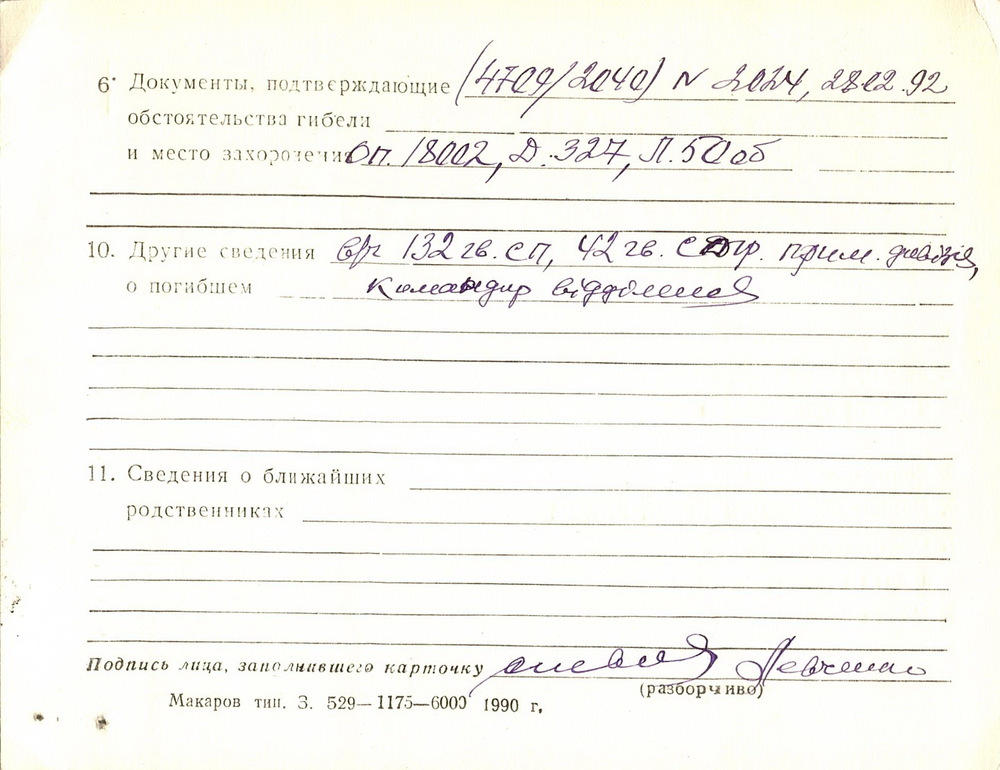 6· Документы, подтверждающие (4709/2040) N 2024, 2802.92
обстоятельства гибели
и место захоронения Оп. 18002, Д. 327, Л. 50 об
10. Другие сведения 132 гв. сп, 42 гв. стр. прим. дивізія,
о погибшем командир відділення
11. Сведения о ближайших
родственниках
Подпись лица, заполнившего карточку Левченко
(разборчиво)
Макаров тип. З. 529—1175—6000 1990 г.